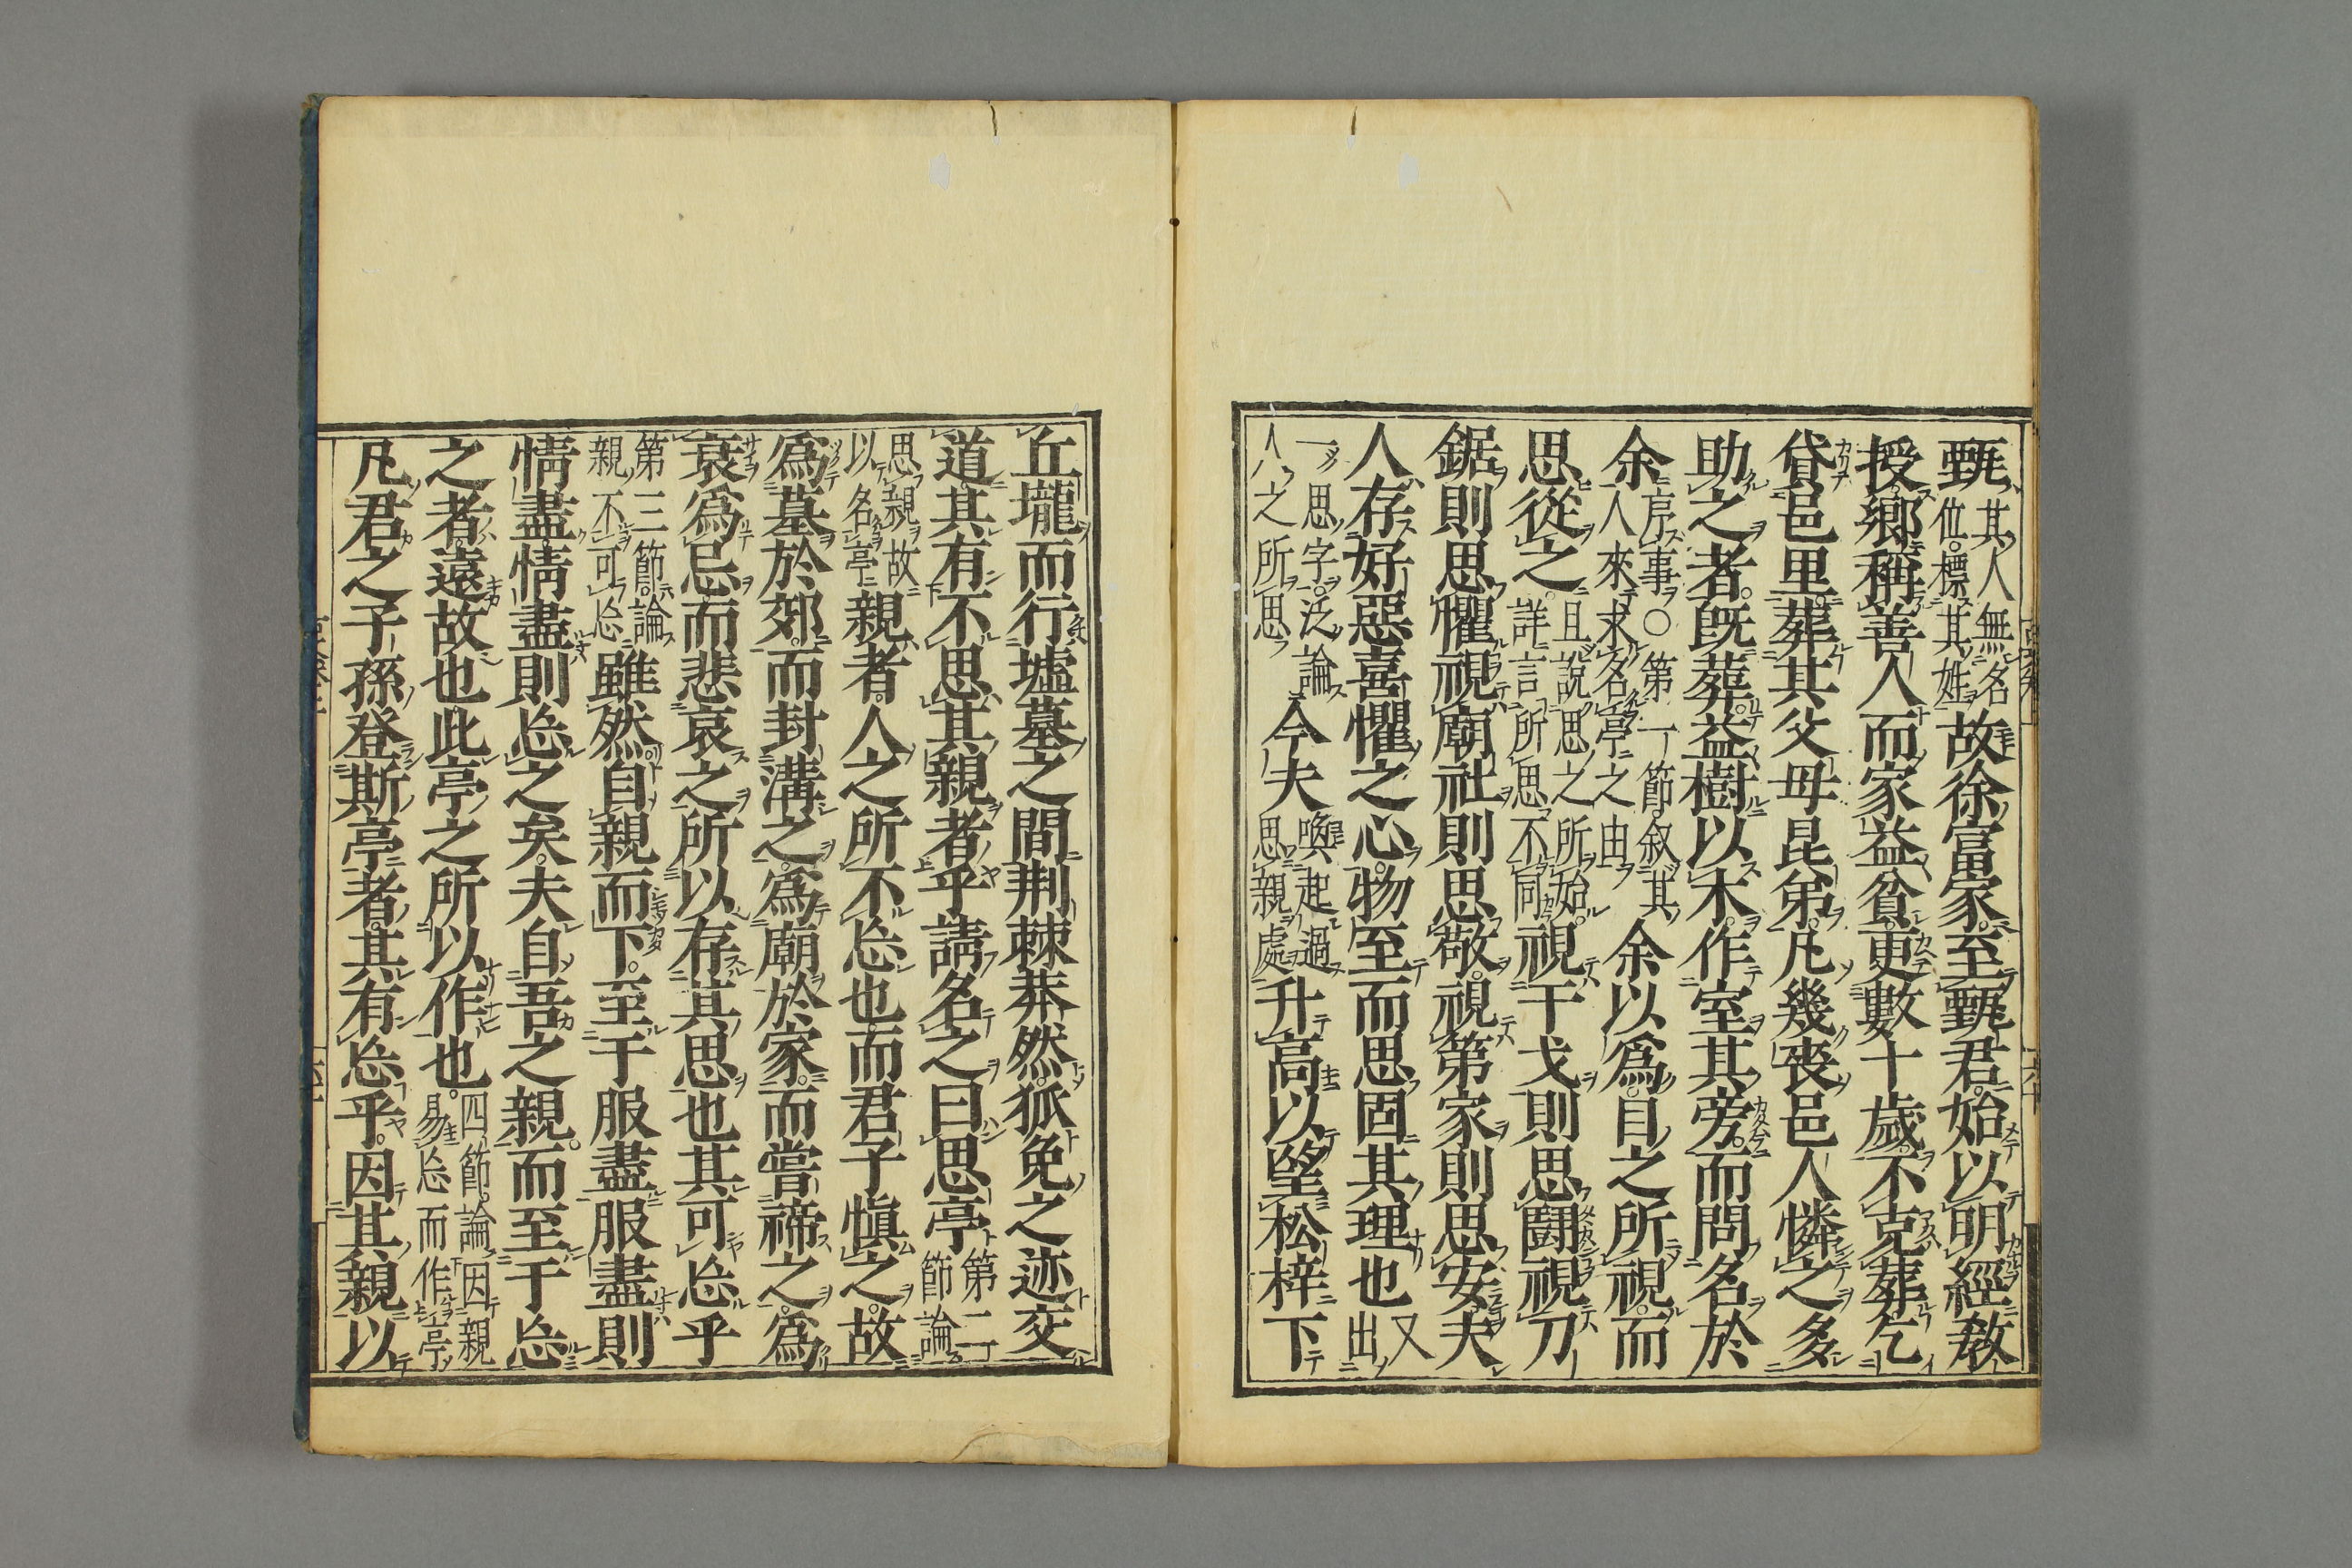 甄其人無名位標其姓故徐富家至甄君始以明經教
授鄉稱善人而家益貧更數十歲不克葬乞
貸邑里葬其父母昆弟凡幾喪邑人憐之多
助之者既葬益樹以木作室其旁而問名於
余序事〇第一節叙其人來求名亭之由余以爲目之所視而
思從之且說思之所始詳言所思不同視干戈則思鬪視刀
鋸則思懼視廟社則思敬視第家則思安夫
人存好惡喜懼之心物至而思固其理也又出
一思字泛論人之所思今夫喚起過思親處升高以望松梓下
丘壠而行墟墓之間荆棘莽然狐兔之迹交
道其有不思其親者乎請名之曰思亭第二節論
思親故以名亭親者人之所不忘也而君子愼之故
爲墓於郊而封溝之爲廟於家而嘗禘之爲
衰爲忌而悲哀之所以存其思也其可忘乎
第三節論親不可忘雖然自親而下至于服盡服盡則
情盡情盡則忘之矣夫自吾之親而至于忘
之者遠故也此亭之所以作也四節論因親易忘而作亭
凡君之子孫登斯亭者其有忘乎因其親以